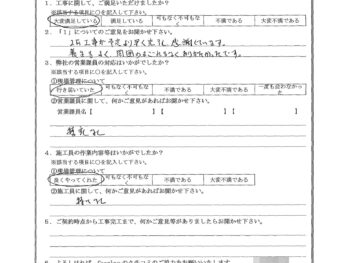 1．工事に関して、ご満足いただけましたか？
※該当する項目に○を記入して下さい。
大変満足している 満足している 可もなく不可もなく 不満である 大変不満である
2．「1」についてのご意見をお聞かせ下さい。
工事が予定より早く完了し感謝しています。
3．弊社の営業議員の対応はいかがでしたか？
※該当する項目に○を記入して下さい。
①現場管理について
行き届いていた 可もなく不可もなく 不満である 大変不満である 一度も会わなかった
②営業議員に関して、何かご意見があればお聞かせ下さい。
営業議員名 【 】 【 】 【 】
特になし
4．施工員の作業内容等はいかがでしたか？
※該当する項目に○を記入して下さい。
①現場管理について
良くやってくれた 可もなく不可もなく 不満である 大変不満である
②施工員に関して、何かご意見があればお聞かせ下さい。
特になし
5．ご契約時点から工事完工まで、何かご意見等がありましたらお聞かせ下さい。